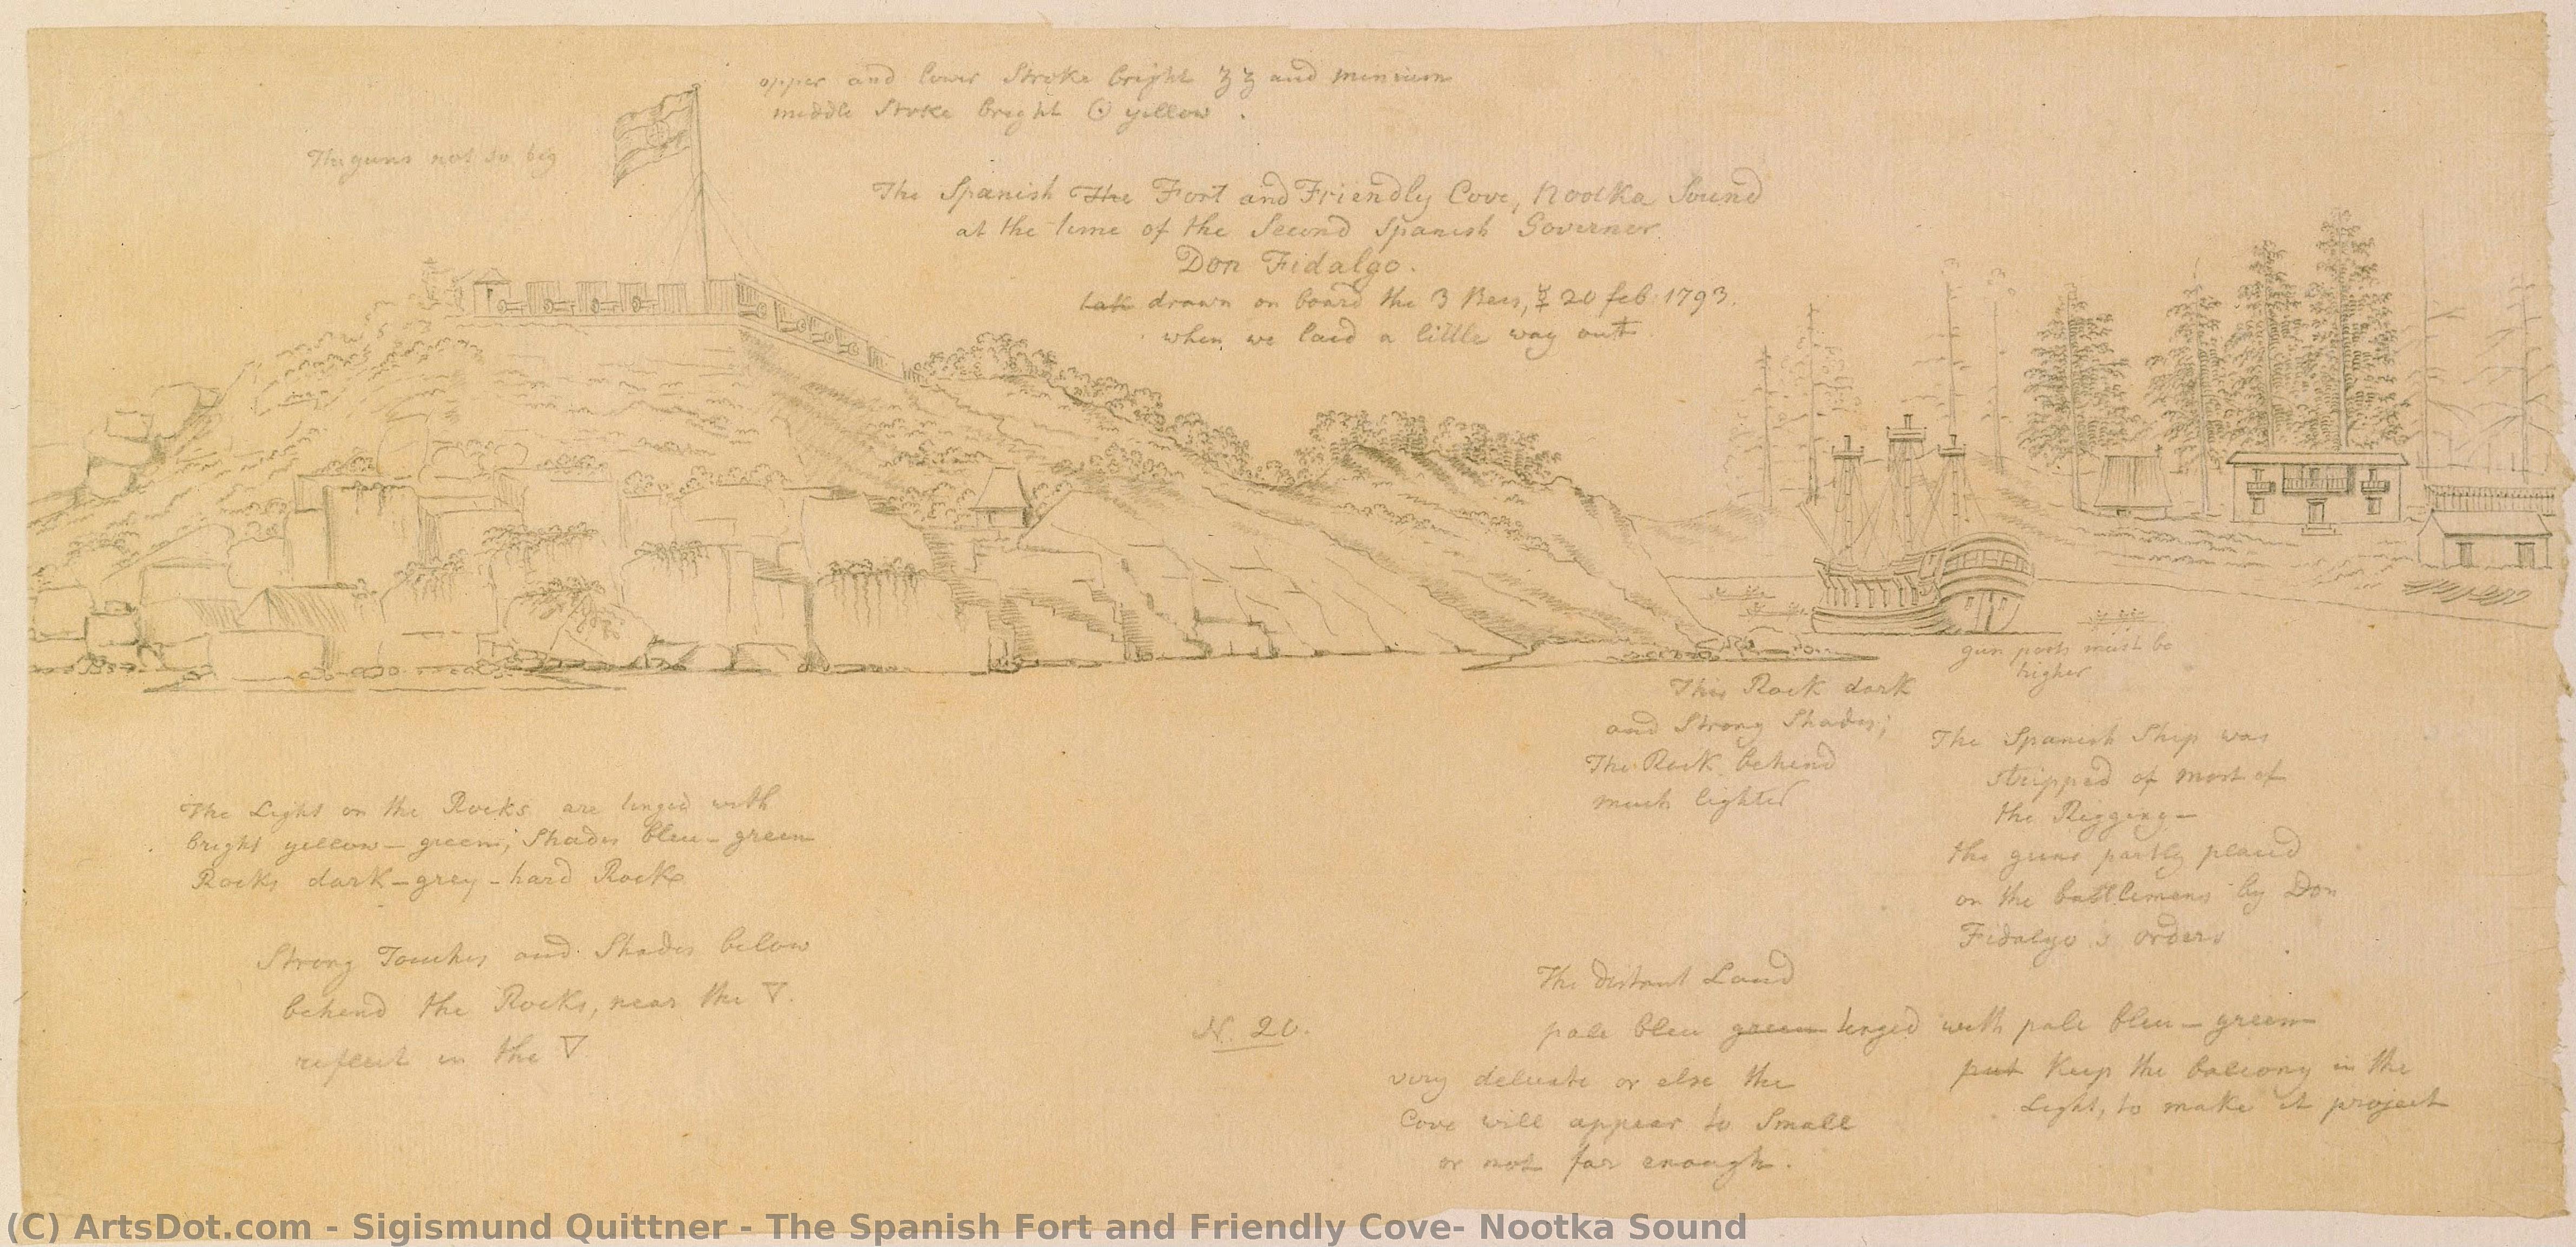 upper and lower Stroke bright ʒ ʒ and minium
middle Stroke bright ☉ yellow .
The guns not so big
The Spanish The Fort and Friendly Cove, Nootka Sound
at the time of the Second Spanish Governor
Don Fidalgo.
drawn on board the 3 Brs, ☿ 20 feb 1793.
when we laid a little way out
gun ports must be
higher
This Rock dark
and Strong Shades;
The Rock behind
much lighter
The Spanish Ship was
stripped of most of
the Rigging—
the guns partly placed
on the battlemens by Don
Fidalgo's orders
The Light on the Rocks are tinged with
bright yellow—green; Shades bleu—green
Rocks dark—grey—hard Rocks
Strong Touches and Shades below
behind the Rocks, near the ▽.
reflect in the ▽
N. 20.
The distant Land
pale bleu green tinged with pale bleu—green
very delicate or else the
Cove will appear to Small
or not far enough.
put Keep the balcony in the
Light, to make it project
(C) ArtsDot.com - Sigismund Quittner - The Spanish Fort and Friendly Cove- Nootka Sound